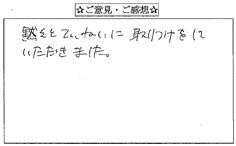 ☆ご意見・ご感想☆
黙々とていねいに取りつけをして
いただきました。